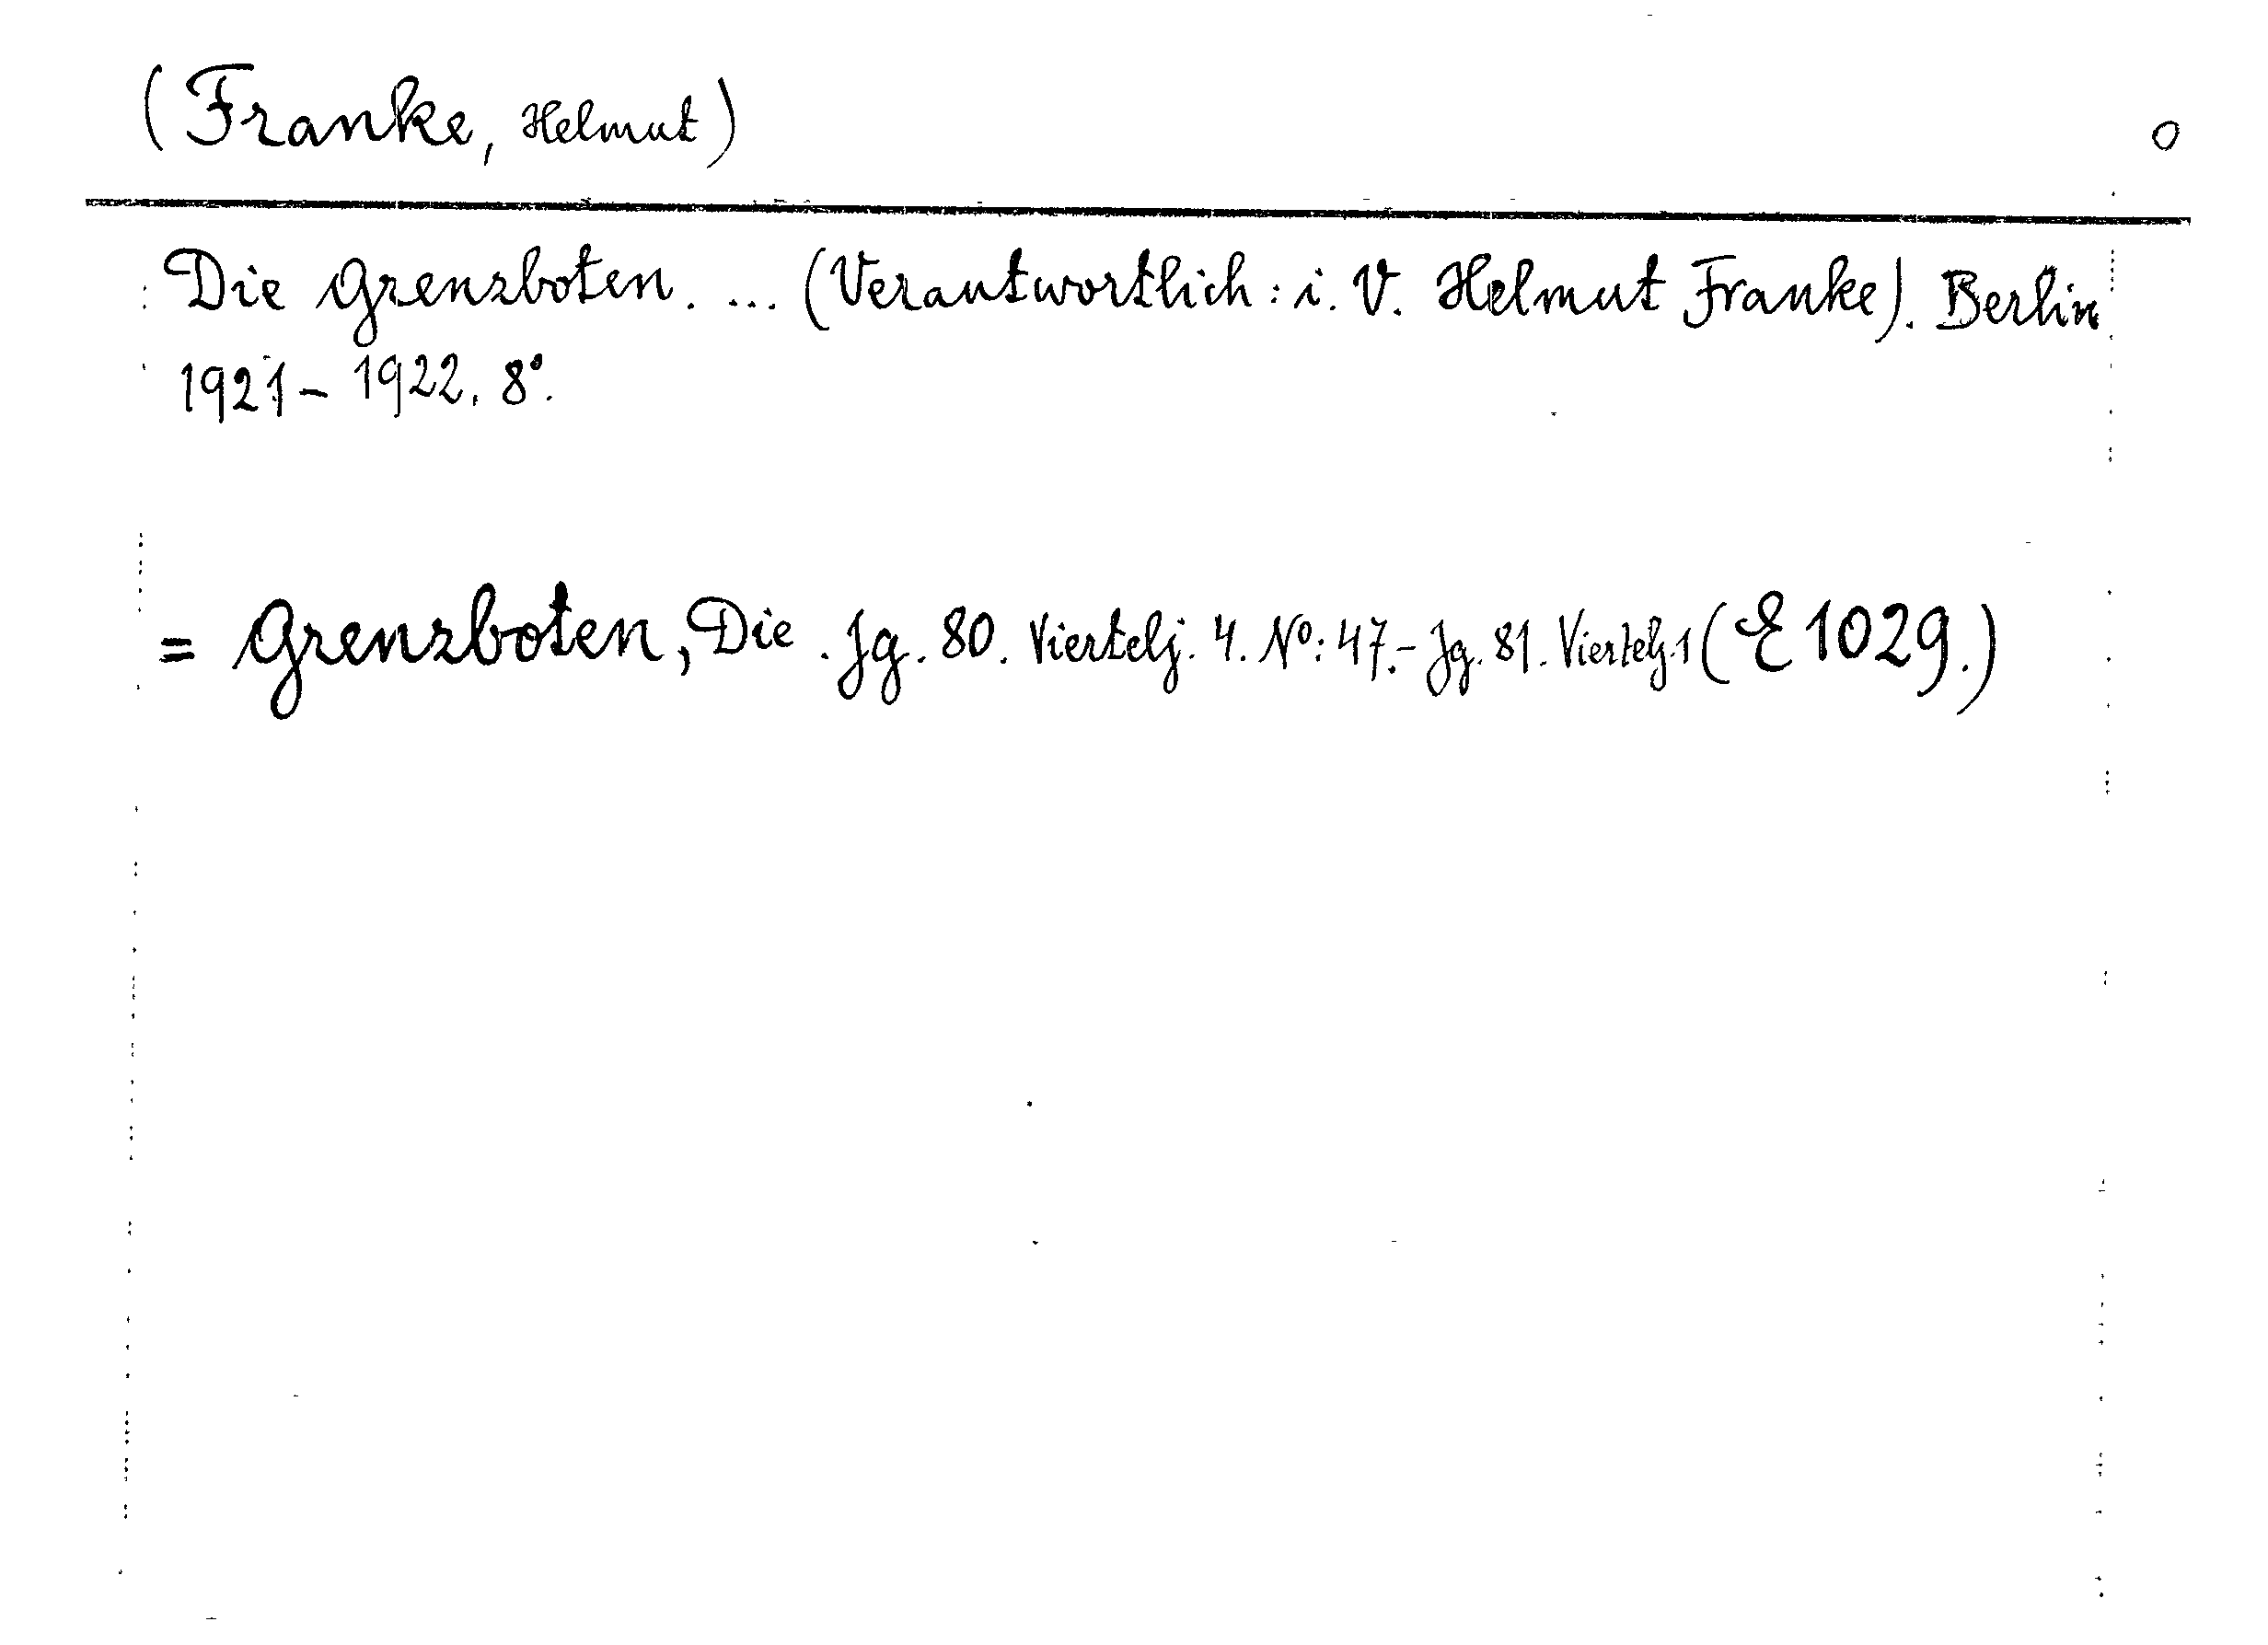 (Franke, Helmut) O
Die Grenzboten. ... (Verantwortlich: i. V. Helmut Franke). Berlin
1921 - 1922. 8°.
= Grenzboten, Die. Jg. 80. Viertelj. 4. No: 47.- Jg. 81. Viertelj. 1 (E 1029.)